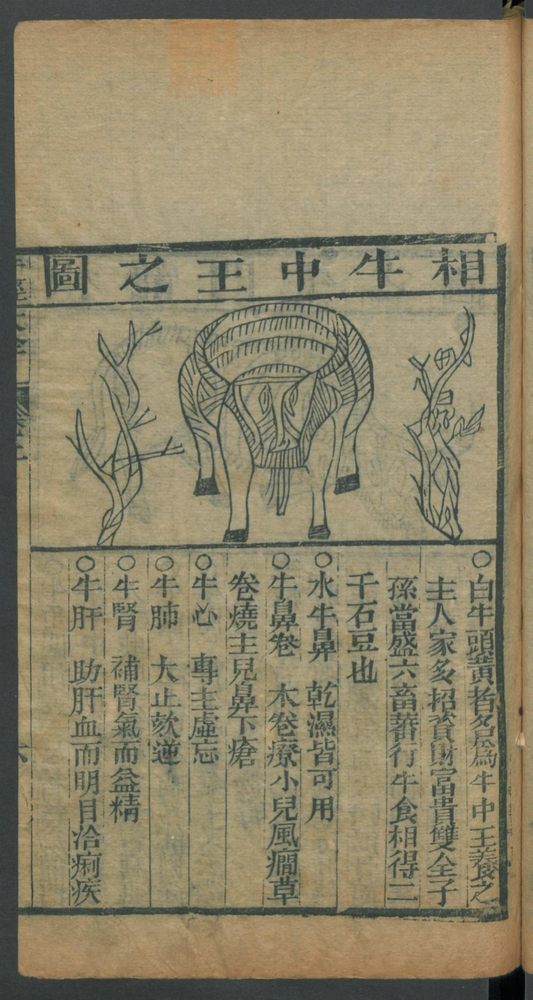 相牛中王之圖
○白牛頭黃者名爲牛中王養之
主人家多招資財富貴雙全子
孫當盛六畜蕃行牛食相得二
千石豆也
○水牛鼻 乾濕皆可用
○牛鼻卷 木卷療小兒風癇草
卷燒主兒鼻下瘡
○牛心 專主虛忘
○牛肺 大止欬逆
○牛腎 補腎氣而益精
○牛肝 助肝血而明目治痢疾